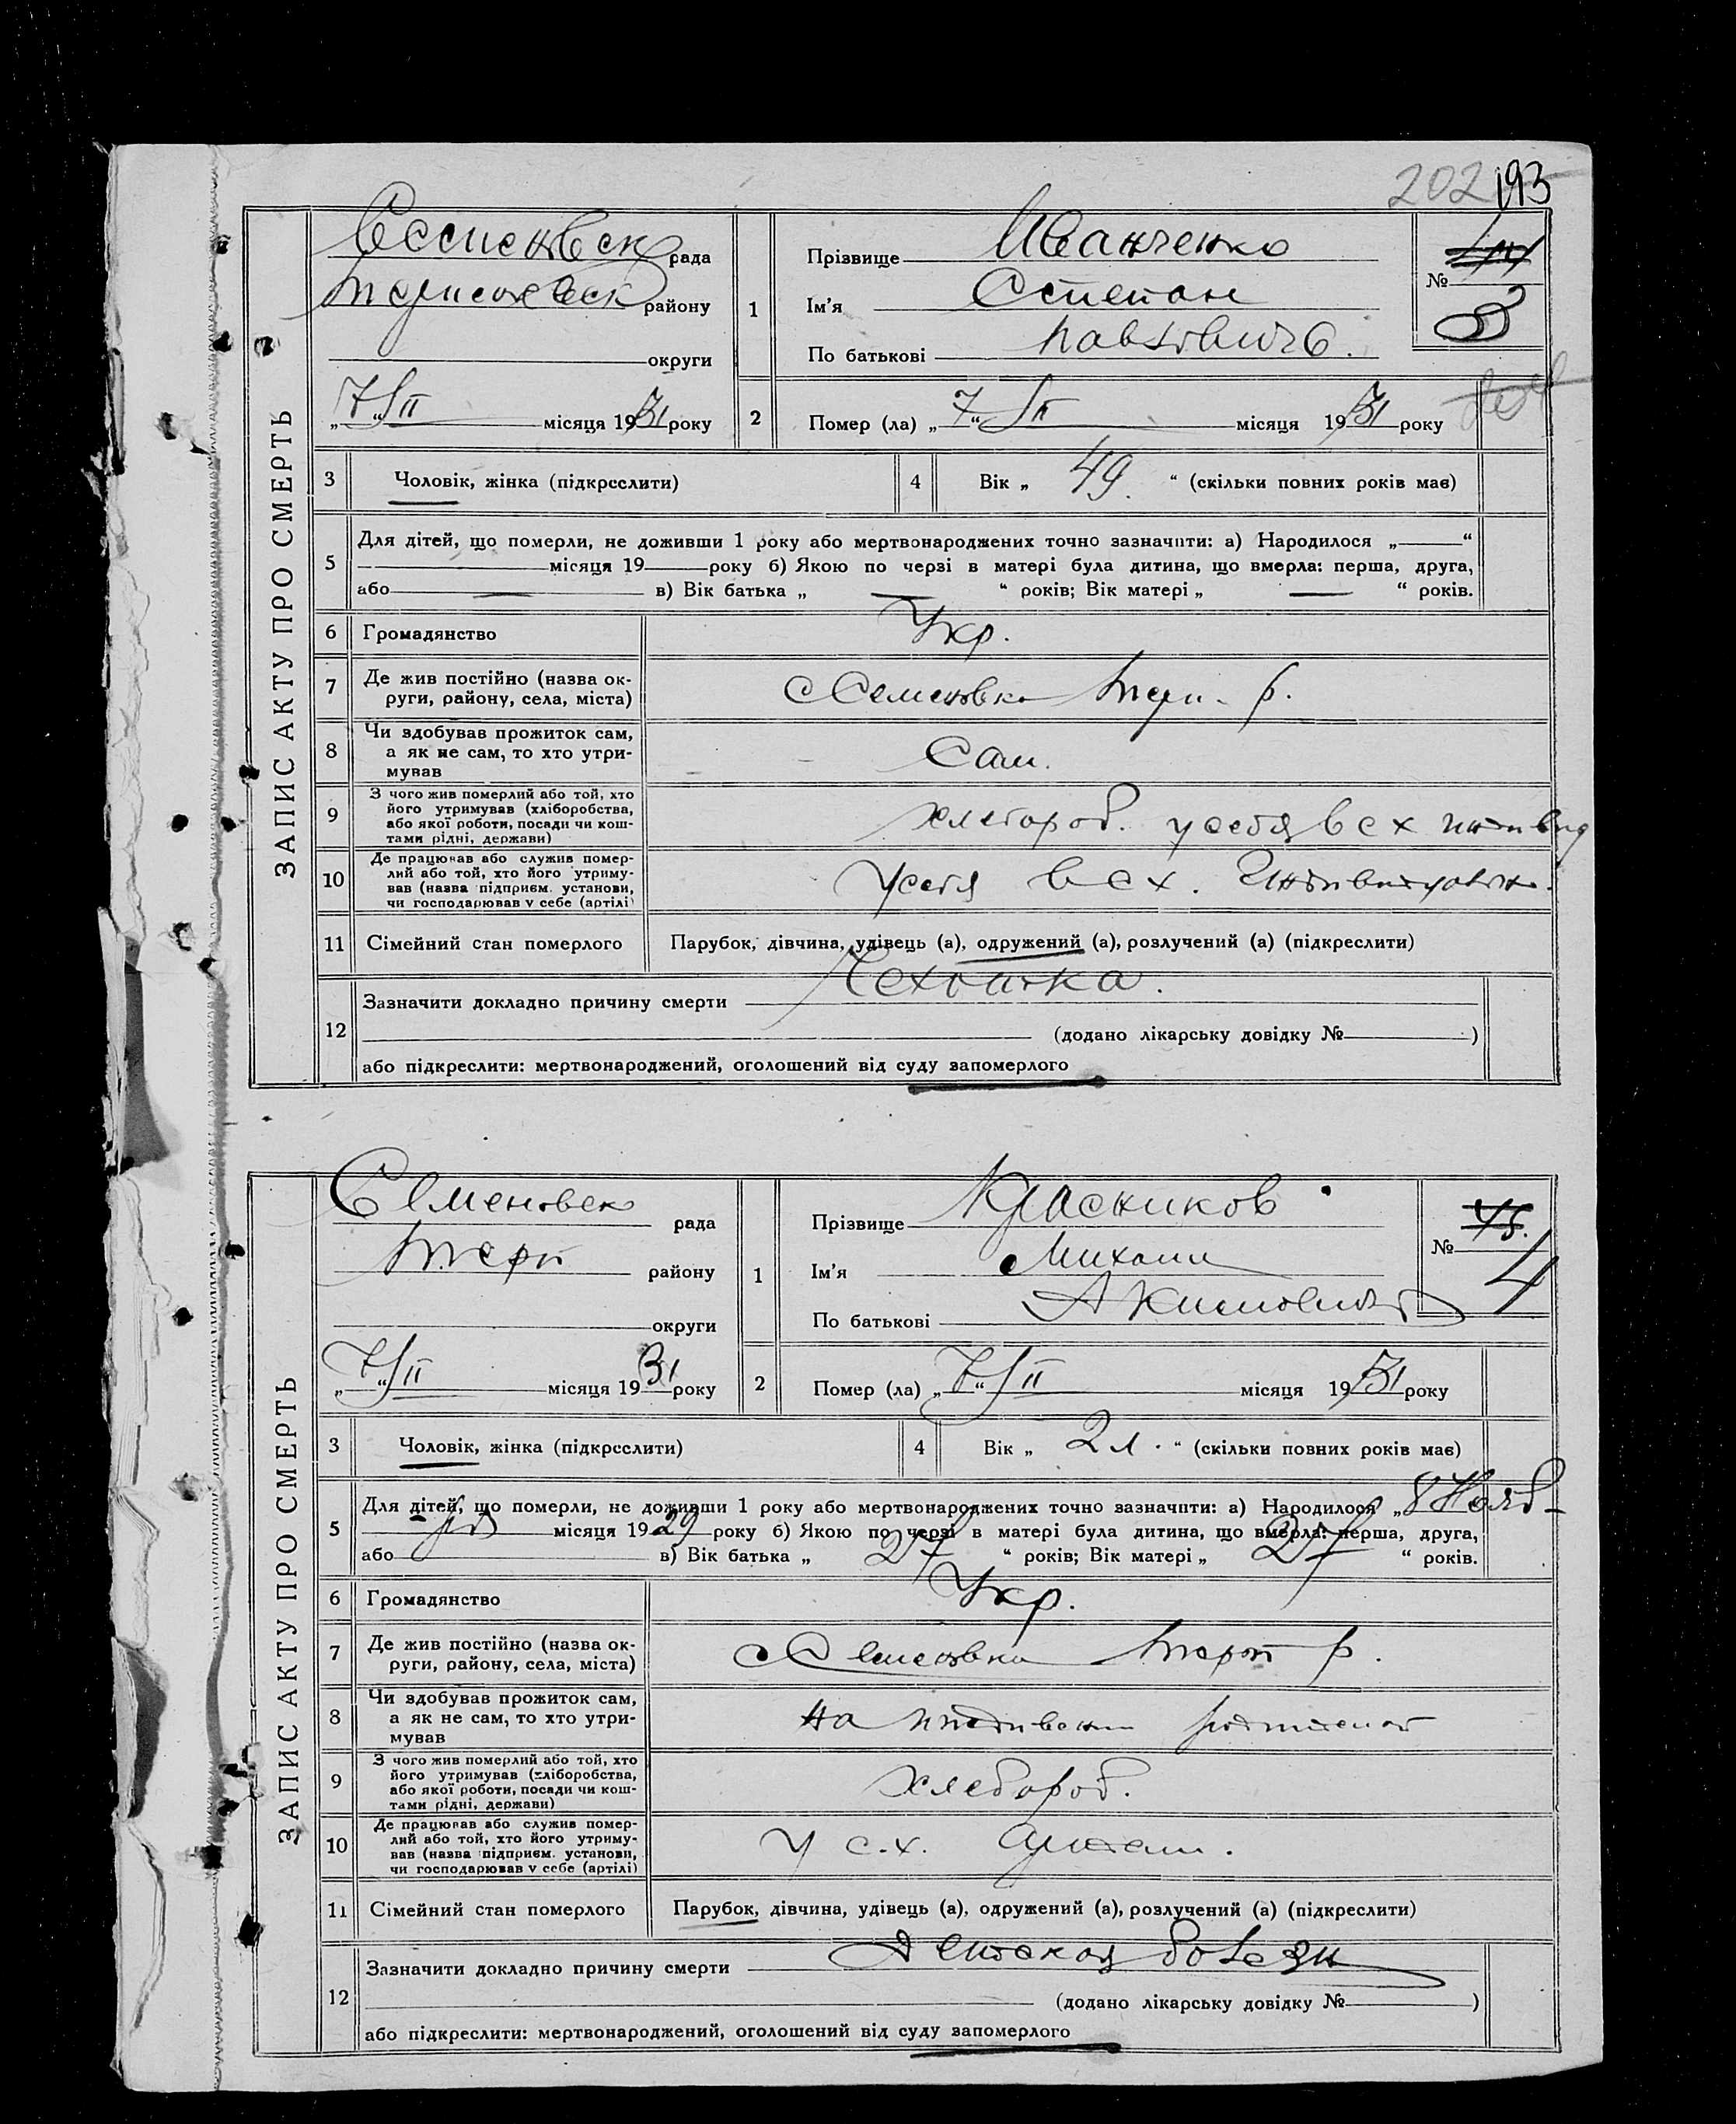 202 193
ЗАПИС АКТУ ПРО СМЕРТЬ
Семеновск рада
району
округи
„7“ II місяця 1931 року
1
Прізвище Иванченко
Ім'я Степан
По батькові Павлович
№ 44
3
2 Помер (ла) „7“ II місяця 1931 року
3 Чоловік, жінка (підкреслити)
4 Вік „ 49. “ (скільки повних років має)
5 Для дітей, що померли, не доживши 1 року або мертвонароджених точно зазначити: а) Народилося „—“
— місяця 19— року б) Якою по черзі в матері була дитина, що вмерла: перша, друга,
або — в) Вік батька „ — “ років; Вік матері „ — “ років.
6 Громадянство Укр.
7 Де жив постійно (назва ок-
руги, району, села, міста) с Семеновка р.
8 Чи здобував прожиток сам,
а як не сам, то хто утри-
мував
Сам.
9 З чого жив померлий або той, хто
його утримував (хліборобства,
або якої роботи, посади чи кош-
тами рідні, держави)
хлебороб. у себя в с х
10 Де працював або служив помер-
лий або той, хто його утриму-
вав (назва підприєм. установи,
чи господарював у себе (артілі)
у себя в с х.
11 Сімейний стан померлого Парубок, дівчина, удівець (а), одружений (а), розлучений (а) (підкреслити)
12 Зазначити докладно причину смерти Чехотка.
(додано лікарську довідку № )
або підкреслити: мертвонароджений, оголошений від суду запомерлого
ЗАПИС АКТУ ПРО СМЕРТЬ
Семеновск рада
Терп району
округи
„7“ II місяця 1931 року
1
Прізвище Красников
Ім'я Михаил
По батькові
№ 45.
4
2 Помер (ла) „7“ II місяця 1931 року
3 Чоловік, жінка (підкреслити)
4 Вік „ 2 л. “ (скільки повних років має)
5 Для дітей, що померли, не доживши 1 року або мертвонароджених точно зазначити: а) Народилося „8 Нояб-
ря місяця 1929 року б) Якою по черзі в матері була дитина, що вмерла: перша, друга,
або в) Вік батька „ 27 “ років; Вік матері „ 27 “ років.
6 Громадянство Укр.
7 Де жив постійно (назва ок-
руги, району, села, міста) с Семеновка Терп р.
8 Чи здобував прожиток сам,
а як не сам, то хто утри-
мував
на
9 З чого жив померлий або той, хто
його утримував (хліборобства,
або якої роботи, посади чи кош-
тами рідні, держави)
хлебороб.
10 Де працював або служив помер-
лий або той, хто його утриму-
вав (назва підприєм. установи,
чи господарював у себе (артілі)
у с.х. артели.
11 Сімейний стан померлого Парубок, дівчина, удівець (а), одружений (а), розлучений (а) (підкреслити)
12 Зазначити докладно причину смерти Детская болезн
(додано лікарську довідку № )
або підкреслити: мертвонароджений, оголошений від суду запомерлого